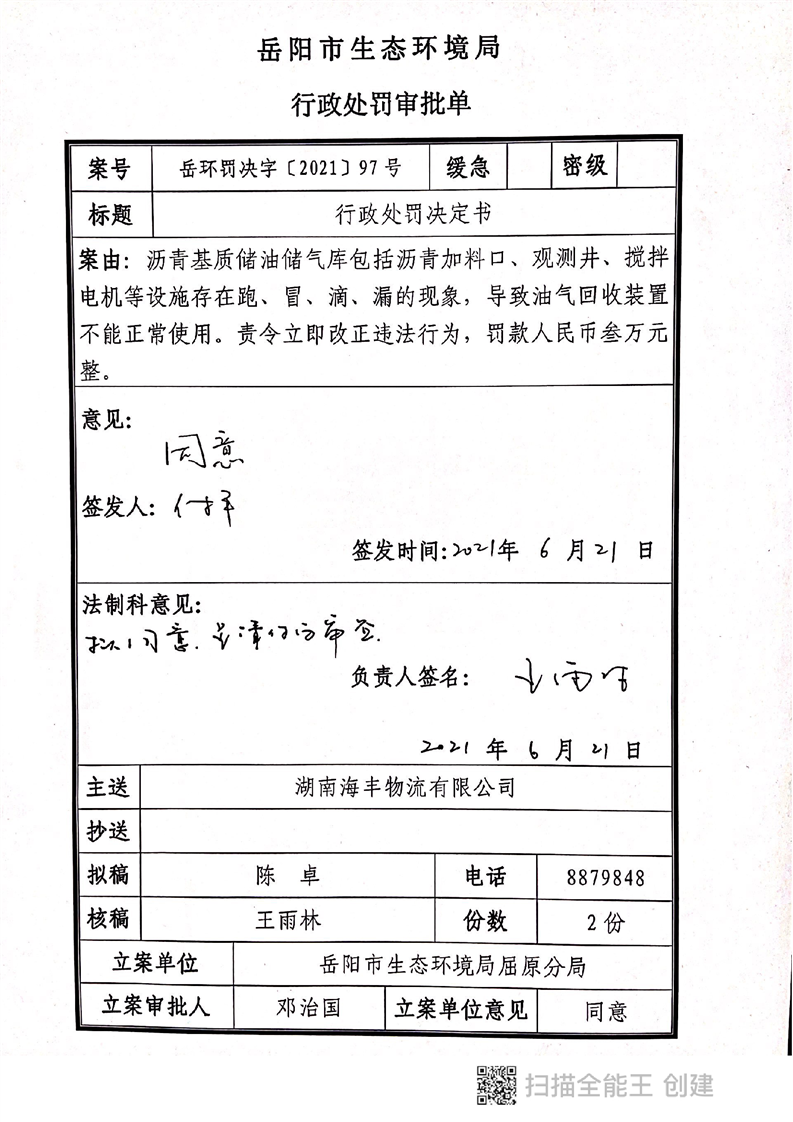 岳阳市生态环境局
行政处罚审批单
案号 岳环罚决字〔2021〕97号 缓急 密级
标题 行政处罚决定书
案由：沥青基质储油储气库包括沥青加料口、观测井、搅拌
电机等设施存在跑、冒、滴、漏的现象，导致油气回收装置
不能正常使用。责令立即改正违法行为，罚款人民币叁万元
整。
意见：
同意
签发人：
签发时间:2021年 6 月 21 日
法制科意见：
拟同意.
负责人签名：
2021 年 6 月 21 日
主送 湖南海丰物流有限公司
抄送
拟稿 陈 卓 电话 8879848
核稿 王雨林 份数 2份
立案单位 岳阳市生态环境局屈原分局
立案审批人 邓治国 立案单位意见 同意
扫描全能王 创建